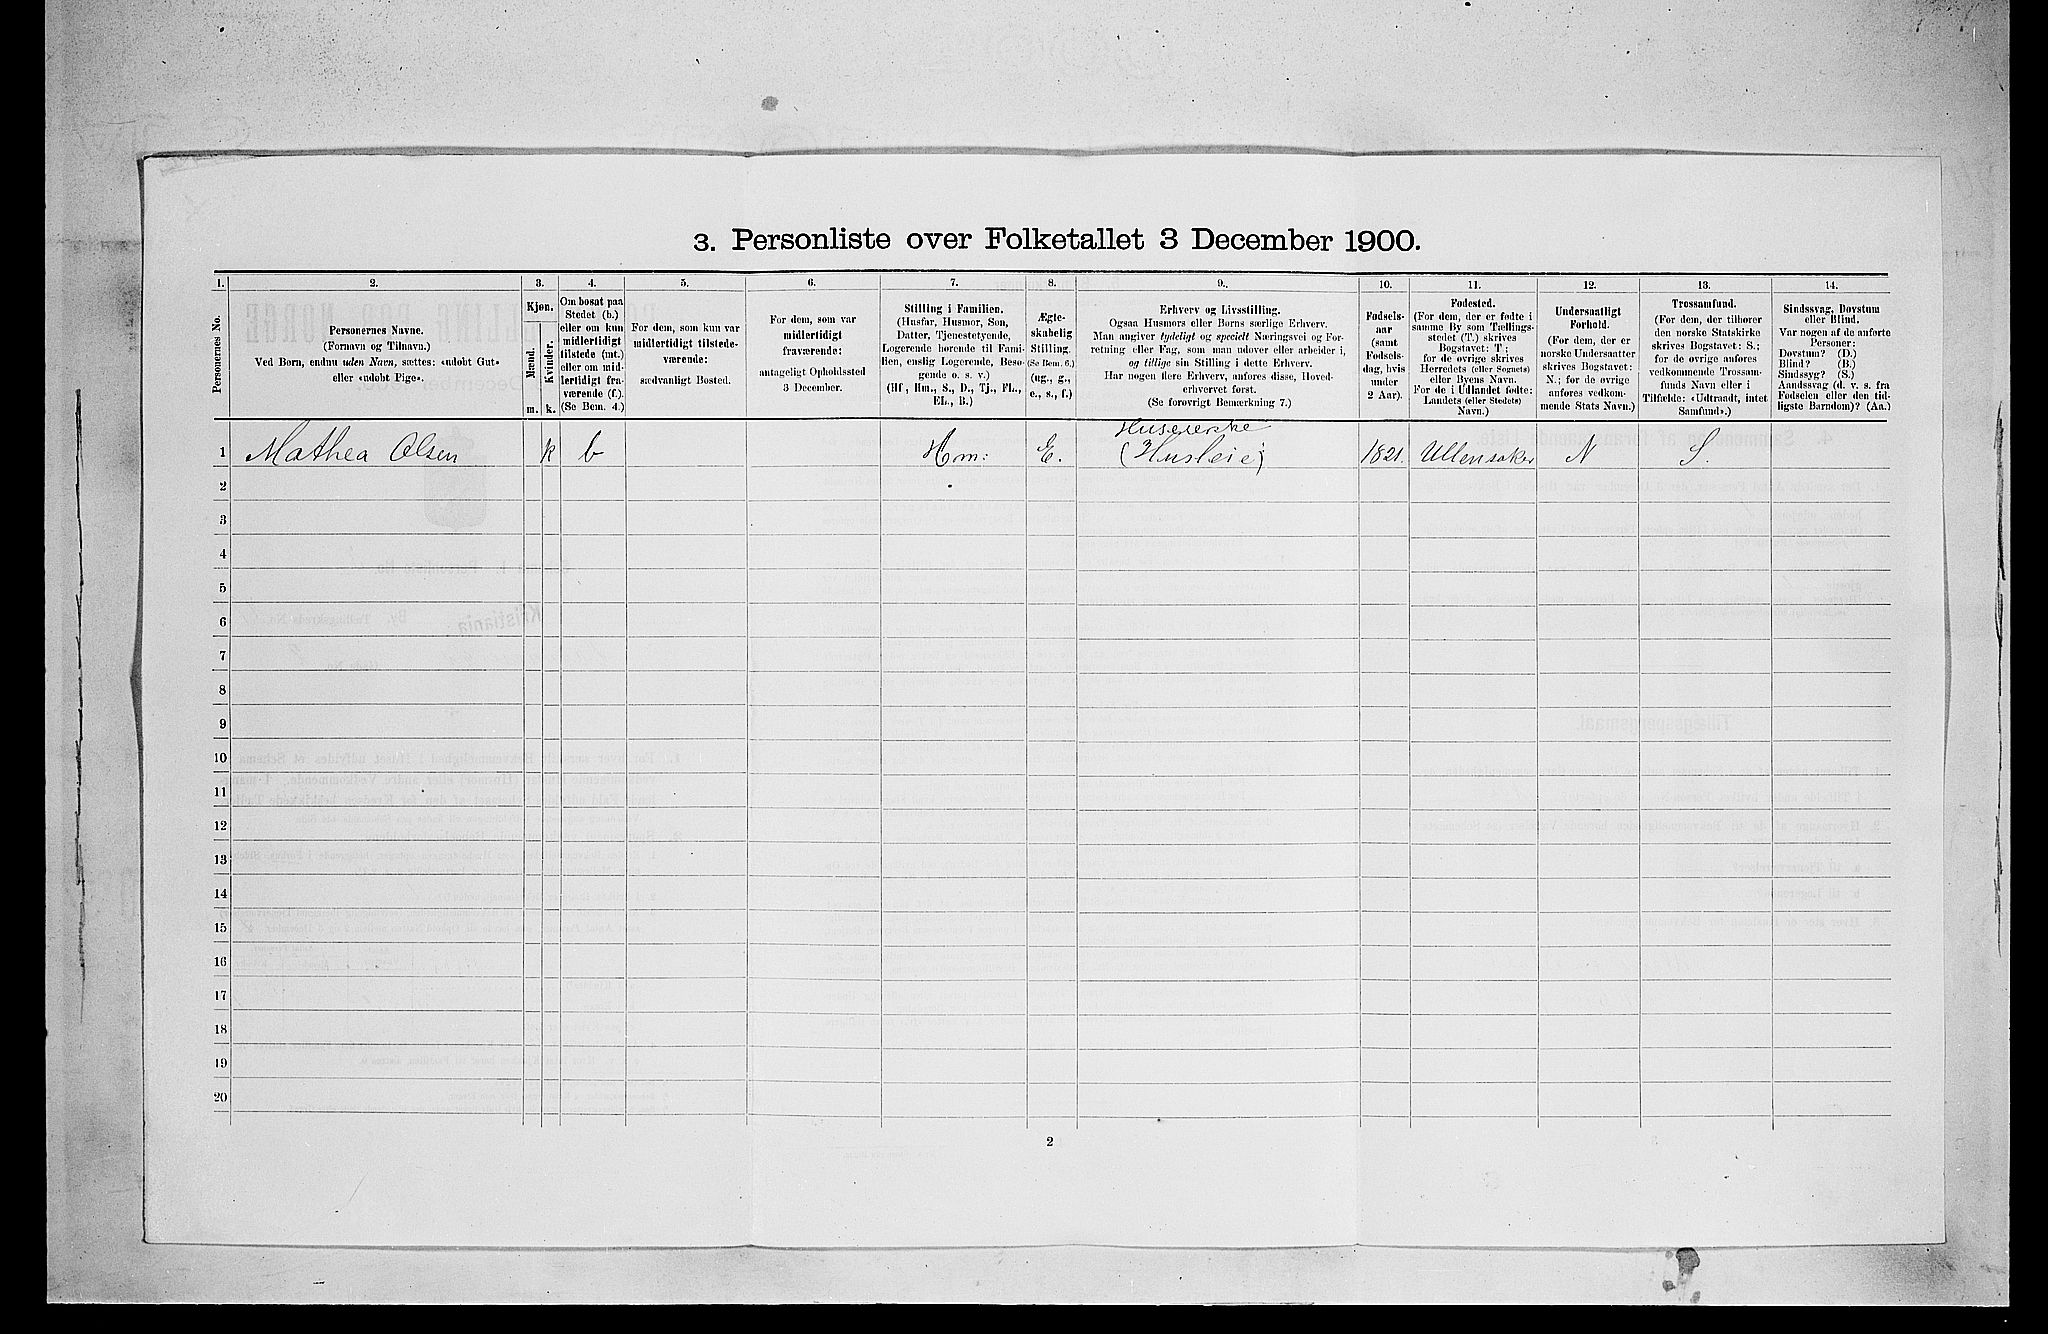 3. Personliste over Folketallet 3 December 1900.
1. 2. 3. 4. 5. 6. 7. 8. 9. 10. 11. 12. 13. 14.
Personernes No.
Personernes Navne.
(Fornavn og Tilnavn.)
Ved Børn, endnu uden Navn, sættes: «udøbt Gut»
eller «udøbt Pige».
Kjøn.
Mænd.
Kvinder.
m. k.
Om bosat paa
Stedet (b.)
eller om kun
midlertidigt
tilstede (mt.)
eller om mid-
lertidigt fra-
værende (f.).
(Se Bem. 4.)
For dem, som kun var
midlertidigt tilstede-
værende:
sædvanligt Bosted.
For dem, som var
midlertidigt
fraværende:
antageligt Opholdssted
3 December.
Stilling i Familien.
(Husfar, Husmor, Søn,
Datter, Tjenestetyende,
Logerende hørende til Fami-
lien, enslig Logerende, Besø-
gende o. s. v.)
(Hf, Hm., S., D., Tj., FL.,
EL., B.)
Ægte-
skabelig
Stilling.
(Se Bem. 6.)
(ug., g.,
e., s., f.)
Erhverv og Livsstilling.
Ogsaa Husmors eller Børns særlige Erhverv.
Man angiver tydeligt og specielt Næringsvei og For-
retning eller Fag, som man udøver eller arbeider i,
og tillige sin Stilling i dette Erhverv.
Har nogen flere Erhverv, anføres disse, Hoved-
erhvervet først.
(Se forøvrigt Bemærkning 7.)
Fødsels-
aar
(samt
Fødsels-
dag, hvis
under
2 Aar).
Fødested.
(For dem, der er fødte i
samme By som Tællings-
stedet (T.) skrives
Bogstavet: T;
for de øvrige skrives
Herredets (eller Sognets)
eller Byens Navn.
For de i Udlandet fødte:
Landets (eller Stedets)
Navn.)
Undersaatligt
Forhold.
(For dem, der er
norske Undersaatter
skrives Bogstavet:
N.; for de øvrige
anføres vedkom-
mende Stats Navn.)
Trossamfund.
(For dem, der tilhører
den norske Statskirke
skrives Bogstavet: S.;
for de øvrige anføres
vedkommende Trossam-
funds Navn eller i
Tilfælde: «Udtraadt, intet
Samfund».)
Sindssvag, Døvstum
eller Blind.
Var nogen af de anførte
Personer:
Døvstum? (D.)
Blind? (B.)
Sindssyg? (S.)
Aandssvag (d. v. s. fra
Fødselen eller den tid-
ligste Barndom)? (Aa.)
Huseierske
1 Mathea Olsen k b Hm: E. (Husleie) 1821. Ullensaker N S.
2
3
4
5
6
7
8
9
10
11
12
13
14
15
16
17
18
19
20
2